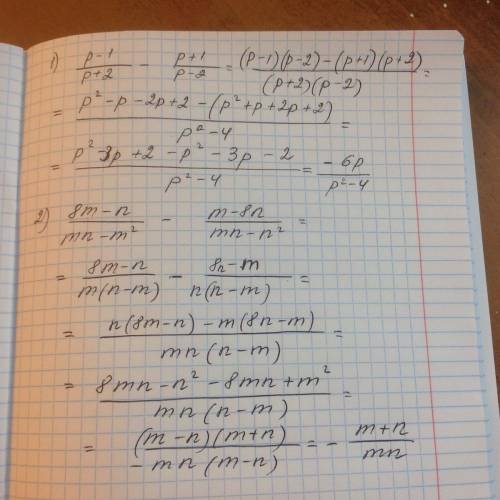 1) (p-1)/(p+2) - (p+1)/(p-2) = ((p-1)(p-2)-(p+1)(p+2))/((p+2)(p-2)) =
= (p²-p-2p+2-(p²+p+2p+2))/(p²-4) =
= (p²-3p+2-p²-3p-2)/(p²-4) = (-6p)/(p²-4)
2) (8m-n)/(mn-m²) - (m-8n)/(mn-n²) =
= (8m-n)/(m(n-m)) - (8n-m)/(n(n-m)) =
= (n(8m-n)-m(8n-m))/(mn(n-m)) =
= (8mn-n²-8mn+m²)/(mn(n-m)) =
= ((m-n)(m+n))/(-mn(m-n)) = - (m+n)/(mn)